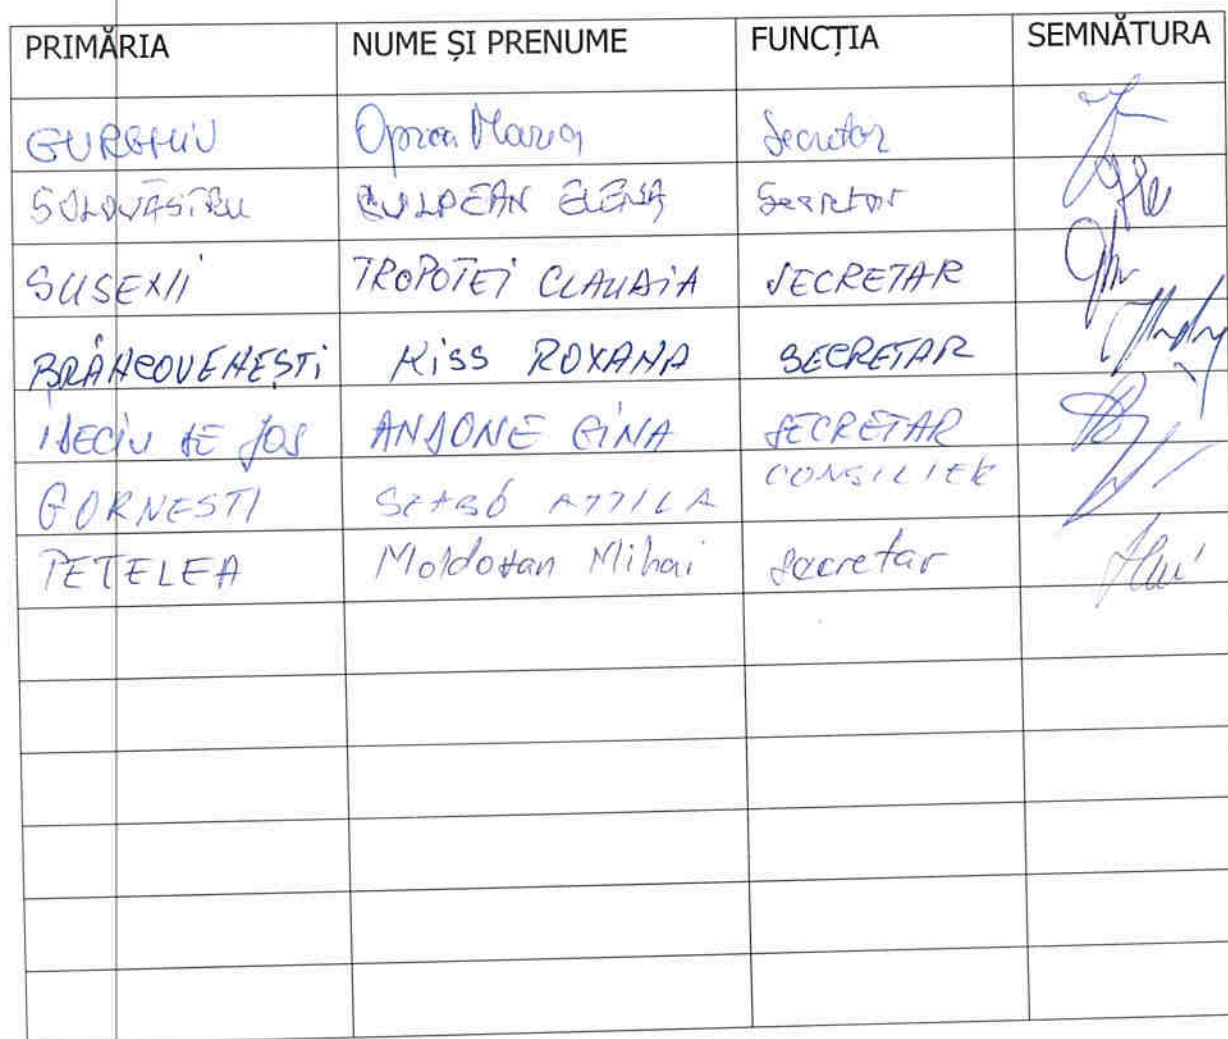 PRIMĂRIA NUME ȘI PRENUME FUNCȚIA SEMNĂTURA
GURGHIU Oprea Maria Secretar
SOLOVĂSTRU CULDEAN ELENA Secretar
SUSENII TROPOTEI CLAUDIA SECRETAR
BRÂNCOVENEȘTI KISS ROXANA SECRETAR
IDECIU DE JOS ANDONE GINA SECRETAR
GORNESTI SZABÓ ATTILA CONSILIER
PETELEA Moldovan Mihai secretar